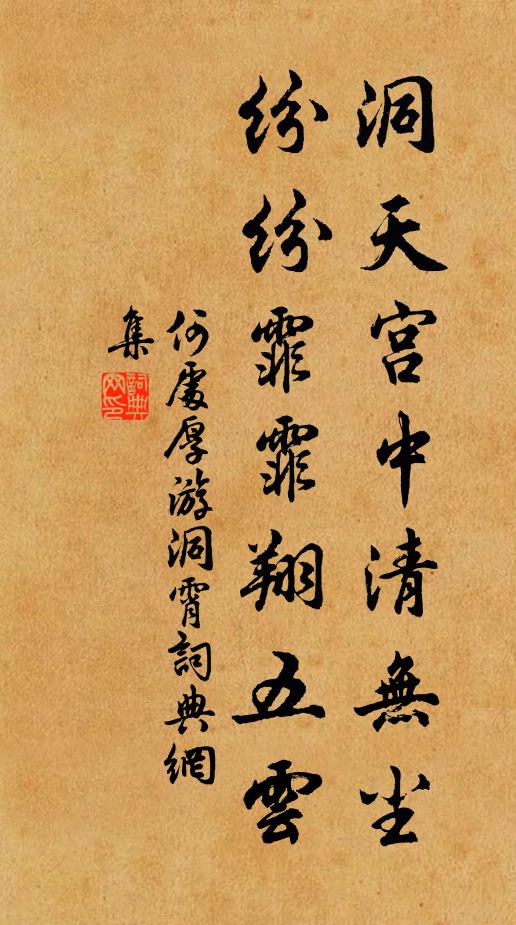 洞天宮中清無尘
紛紛霏霏翔五雲
何處厚游洞霄詞典網
集
詞典網印